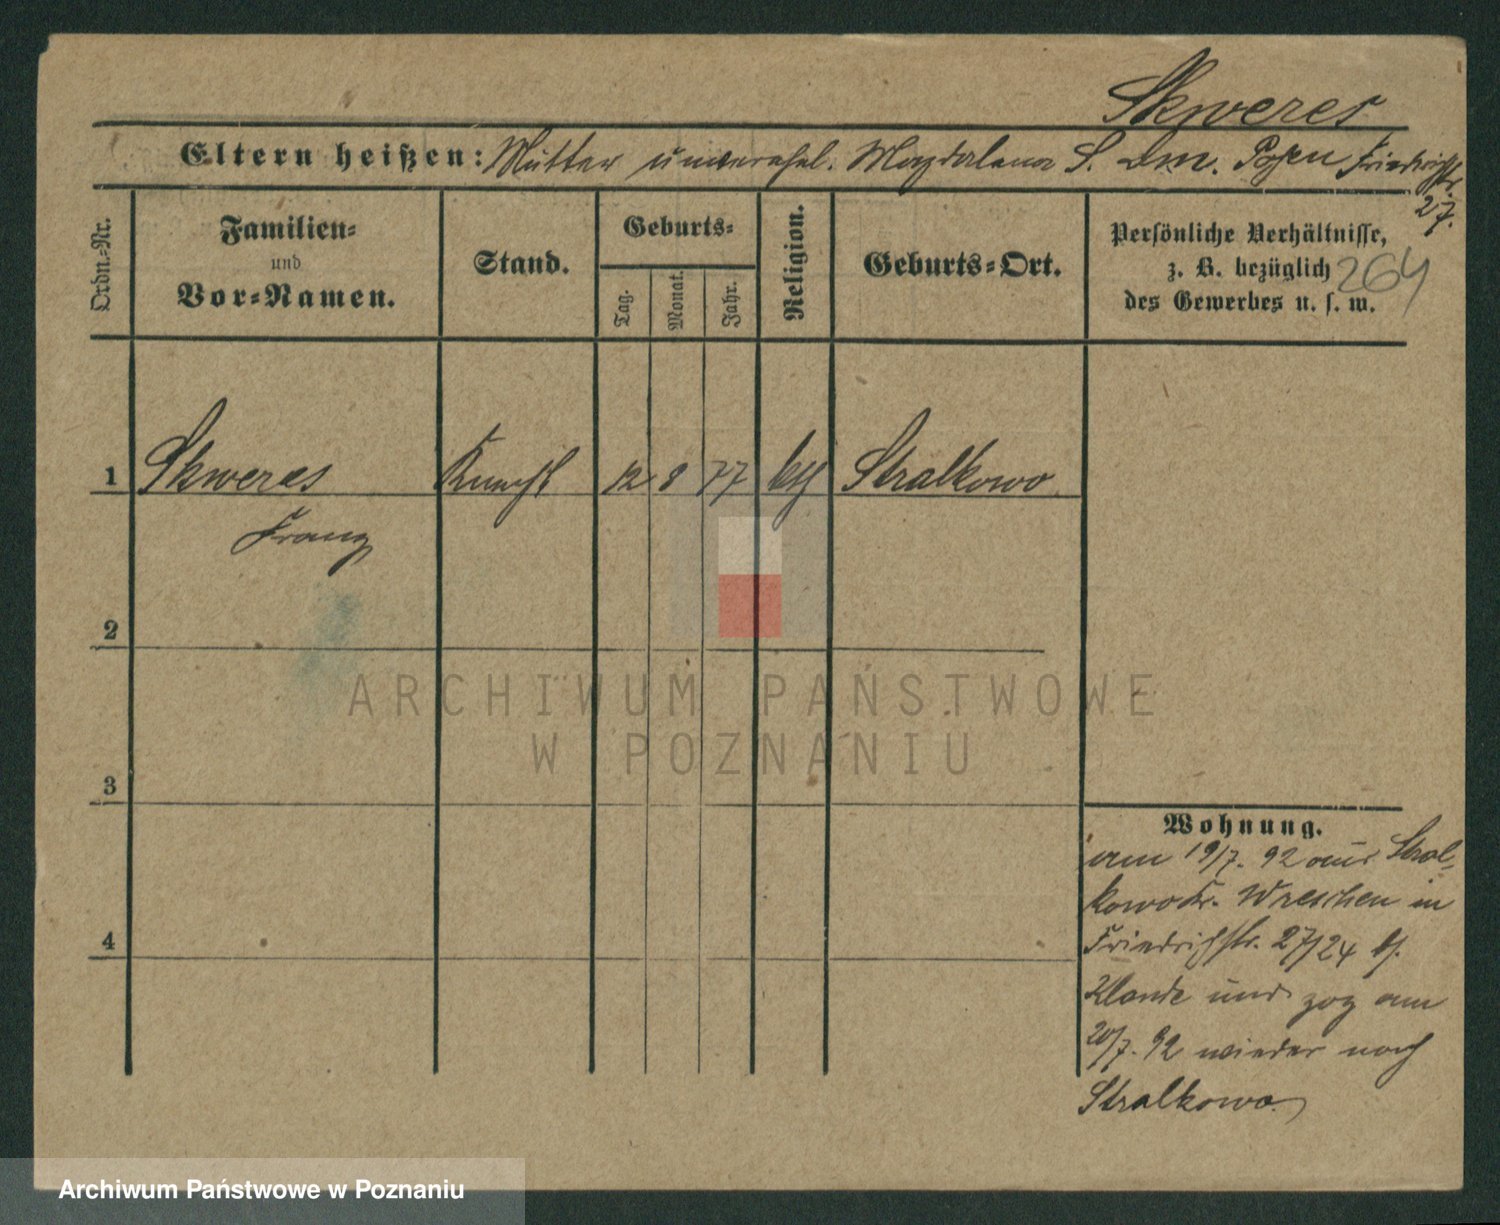 Skweres
Eltern heißen: Mutter unverehel. Magdalena S. Dm. Posen Friedrichstr.
27.
Ordn.-Nr.
Familien-
und
Vor-Namen.
Stand.
Geburts-
Tag.
Monat.
Jahr.
Religion.
Geburts-Ort.
Persönliche Verhältnisse,
z. B. bezüglich
des Gewerbes u. s. w.
264
1 Skweres Knecht 12 8 77 kth Stralkowo
Franz
2
3
4
Wohnung.
am 19/7. 92 aus Stral-
kowo Kr. Wreschen in
Friedrichstr. 27/24 b.
und zog am
20/7. 92 wieder nach
Stralkowo.
ARCHIWUM PAŃSTWOWE
W POZNANIU
Archiwum Państwowe w Poznaniu